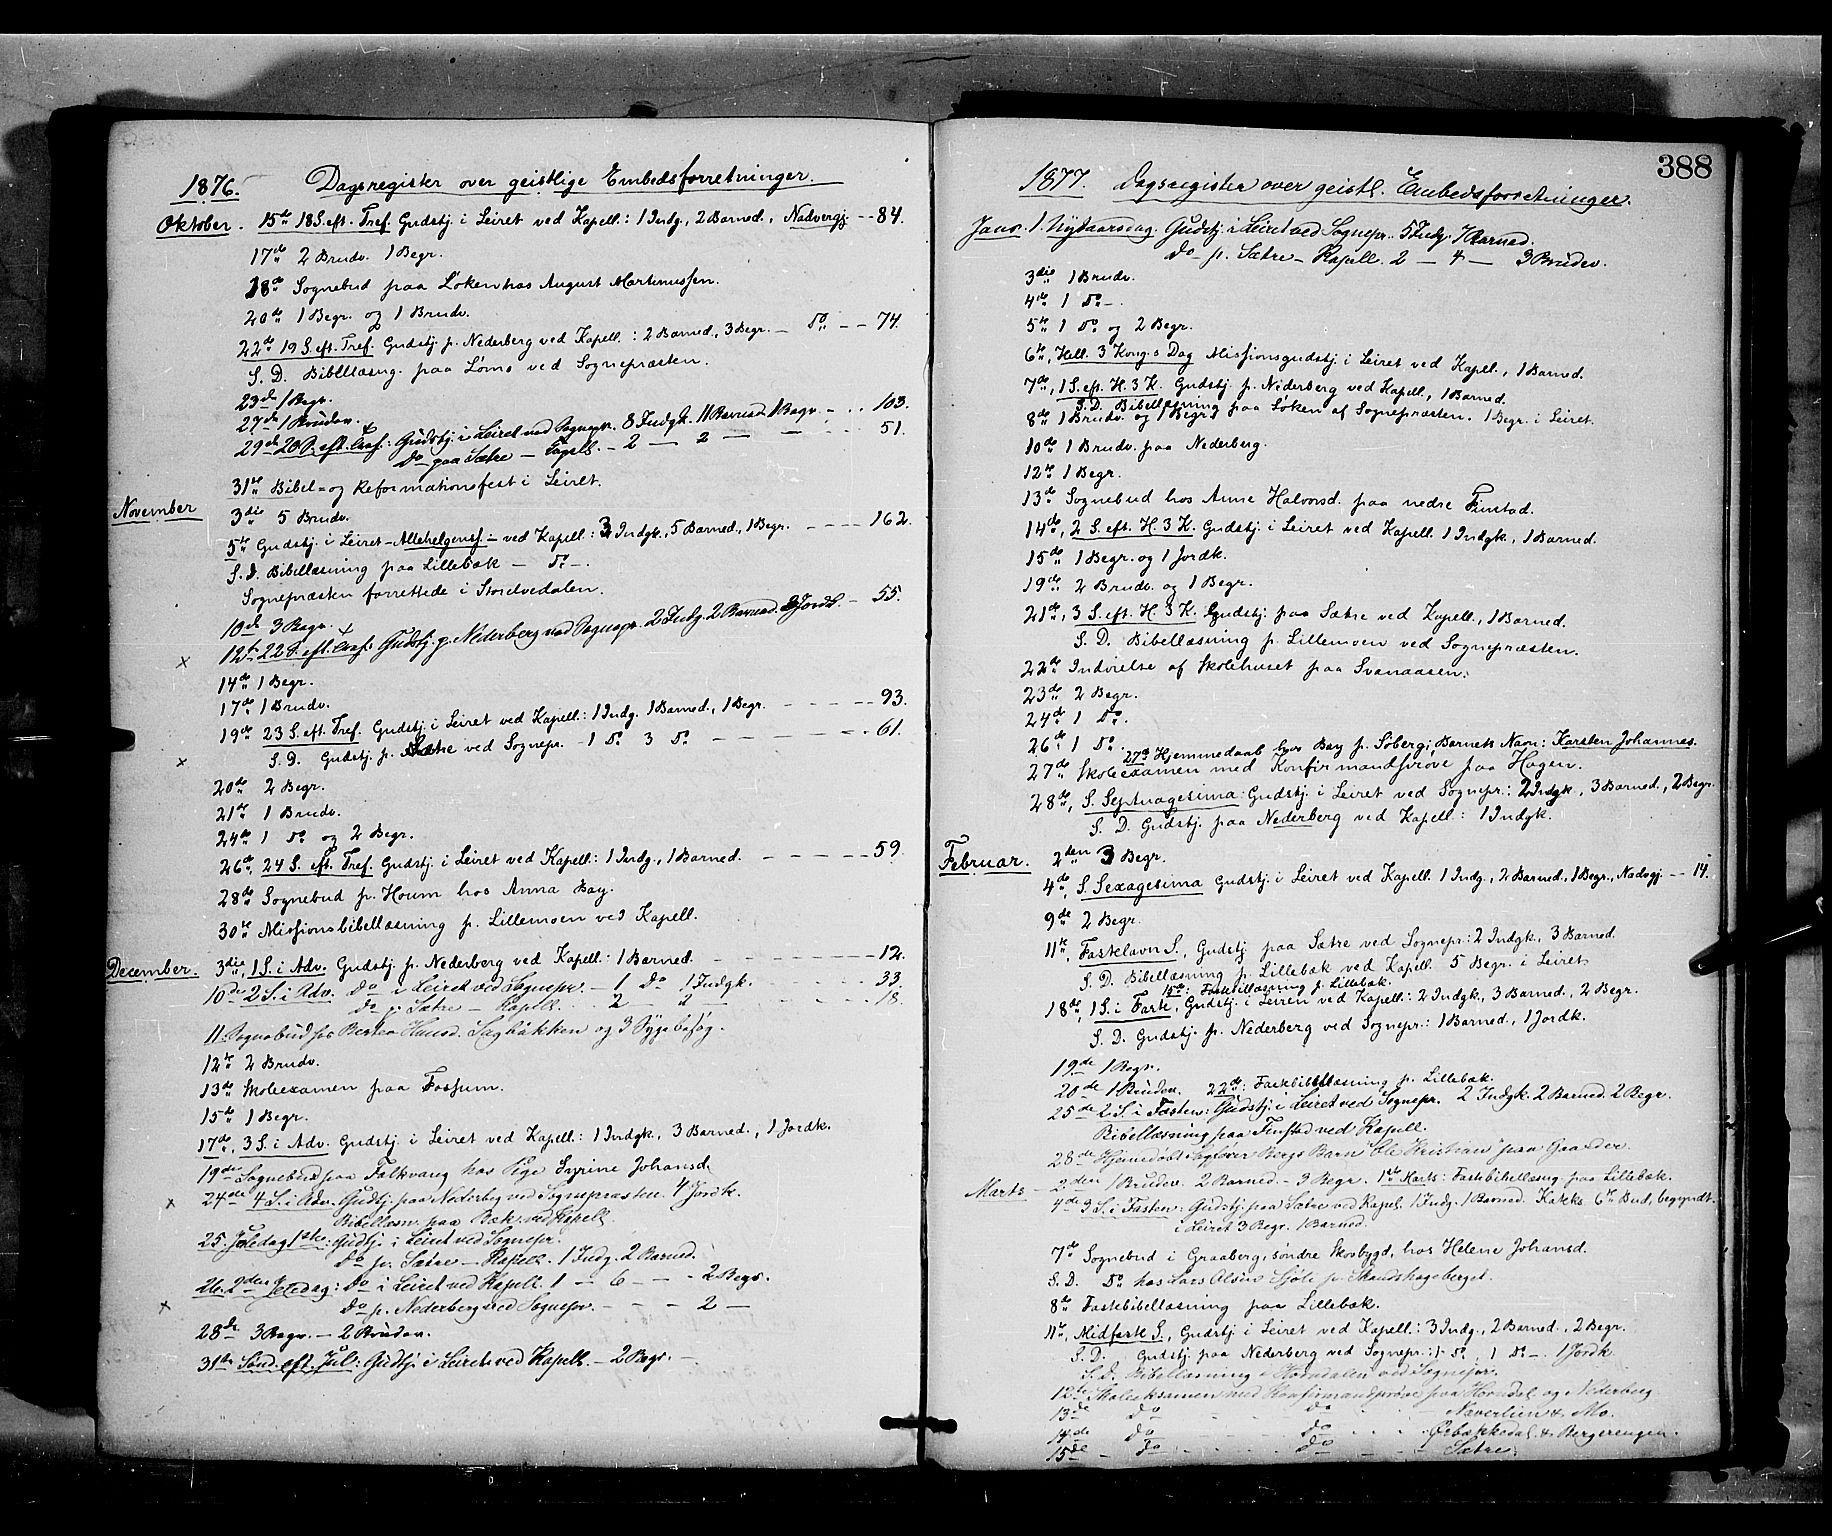 1876. Dagsregister over geistlige Embedsforretninger.
Oktober. 15de 18 S. eft. Tref. Gudstj. i Leiret ved Kapell.: 1 Indg., 2 Barned., Nadvergj. -- 84.
17de 2 Brudv. 1 Begr.
18de Sognebud paa Løken hos August Martinussen.
20de 1 Begr. og 1 Brudv.
22de 19 S. eft. Tref. Gudstj. p. Nederberg ved Kapell.: 2 Barned., 3 Begr. — Do -- 74.
S. D. Bibellæsng. paa Løms ved Sognepræsten.
23de 1 Begr.
27de 1 Brudev.
29de 20 S. eft. Tref: Gudstj. i Leiret ved Sognepr. 8 Indgk. 11 Barned. 1 Begr. - .. 103.
Do paa Sætre — Capell. - 2 — 2 — — .. 51.
31te Bibel- og Reformationsfest i Leiret.
November 3die 5 Brudv.
5te Gudstj. i Leiret - Allehelgensf. - ved Kapell.: 3 Indgk., 5 Barned., 1 Begr. ---- 162.
S. D. Bibellæsning paa Lillebæk — Do —.
Sognepræsten forrettede i Storelvedalen.
10de 3 Begr.
x 12te 22 S. eft. Tref: Gudstj. p. Nederberg ved Sognepr. 2 Indg. 2 Barned. 2 Jordk. - 55.
14de 1 Begr.
17de 1 Brudv.
19de 23 S. eft. Tref. Gudstj. i Leiret ved Kapell.: 1 Indg. 1 Barned., 1 Begr. ----- 93.
x S. D. Gudstj. p. Sætre ved Sognepr. - 1 Do 3 Do ------ 61.
20de 2 Begr.
21de 1 Brudv.
24de 1 Do og 2 Begr.
26de 24 S. eft. Tref. Gudstj. i Leiret ved Kapell.: 1 Indg., 1 Barned. ----- 59.
28de Sognebud p. Houm hos Anna Bay.
30te Missionsbibellæsning p. Lillemoen ved Kapell.
December. 3die, 1 S. i Adv. Gudstj. p. Nederberg ved Kapell.: 1 Barned. ------ 12.
10de 2 S. i Adv. Do i Leiret ved Sognepr. — 1 Do 1 Indgk. ----- 33.
Do p. Sætre — Kapell. 2 — " ----- 18.
11. Sognebud hos Berthe Hansd. Sagbakken og 3 Sygebesøg.
12te 2 Brudv.
13de Skoleexamen paa Fossum.
15te 1 Begr.
17de, 3 S. i Adv. Gudstj. i Leiret ved Kapell.: 1 Indgk., 3 Barned., 1 Jordk.
19de Sognebud paa Falkvang hos Pige Syrine Johansd.
x 24de 4 S. i Adv. Gudstj. paa Nederbeg ved Sognepræsten. 4 Jordk.
Bibellæsn. paa Bæk ved Kapell.
25 Juledag 1ste: Gudstj. i Leiret ved Sognepr.
Do p. Sætre — Kapell. 1 Indg. 2 Barned.
26. 2den Juledag: Do i Leiret ved Kapell. 1 — 6 — - 2 Begr.
x Do p. Nederberg ved Sognepr. - - - 2 —
28de 3 Begr. - 2 Brudev.
31te Sønd. eft. Jul: Gudstj. i Leiret ved Kapell. - 2 Begr. -
388
1877. Dagsregister over geistl. Embedsforretninger.
Janr. 1. Nytaarsdag. Gudstj. i Leiret ved Sognepr. 5 Indg. 7 Barned.
Do p. Sætre - Kapell. 2 — 4 — 3 Brudev.
3die 1 Brudv.
4de 1 Do —.
5te 1 Do og 2 Begr.
6te, Hell. 3 Kong.s Dag Missionsgudstj. i Leiret ved Kapell., 1 Barned.
7de, 1 S. eft. H. 3 K. Gudstj. p. Nederberg ved Kapell., 1 Barned.
S. D. Bibellæsning paa Løken af Sognepræsten. 1 Begr. i Leiret.
8de 1 Brudv. og 1 Begr.
10de 1 Brudv. paa Nederberg.
12te 1 Begr.
13de Sognebud hos Anne Halvorsd. paa nedre Finstad.
14de, 2 S. eft. H. 3 K. Gudstj. i Leiret ved Kapell. 1 Indgk., 1 Barned.
15de 1 Begr. og 1 Jordk.
19de 2 Brudv. og 1 Begr.
21de, 3 S. eft. H. 3 K. Gudstj. paa Sætre ved Kapell., 1 Barned.
S. D. Bibellæsning p. Lillemoen ved Sognepræsten.
22de Indvielse af Skolehuset paa Svenaasen.
23de 2 Begr.
24de 1 Do.
26de 1 Do.
27de Hjemmedaab hos Bay p. Søberg; Barnets Navn: Karsten Johannes.
27de Skoleexamen med Konfirmandprøve paa Hagen.
28de, S. Septuagesima: Gudstj. i Leiret ved Sognepr.: 2 Indgk., 3 Barned., 2 Begr.
S. D. Gudstj. paa Nederberg ved Kapell.: 1 Indgk.
Februar. 2den 3 Begr.
4de, S. Sexagesima Gudstj. i Leiret ved Kapell. 1 Indg., 2 Barned., 1 Begr., Nadvgj. -- 14.
9de 2 Begr.
11te, Fastelavn S., Gudstj. paa Sætre ved Sognepr.: 2 Indgk., 3 Barned.
S. D. Bibellæsning p. Lillebæk ved Kapell. 5 Begr. i Leiret.
15de: Fastebibellæsning p. Lillebæk.
18de, 1 S. i Faste, Gudstj. i Leiren ved Kapell.: 2 Indgk., 3 Barned., 2 Begr.
S. D. Gudstj. p. Nederberg ved Sognepr.: 1 Barned., 1 Jordk.
19de 1 Begr.
20de 1 Brudev. 22de: Fastebibellæsning p. Lillebæk.
25de 2 S. i Fasten: Gudstj. i Leiret ved Sognepr. 2 Indgk. 2 Barned. 2 Begr.
Bibellæsning paa Finstad ved Kapell.
28de Hjemedøbt Sagfører Bergs Barn Ole Kristian paa Gaarder.
Marts - 2den 1 Brudev. 2 Barned. - 3 Begr. 1ste Marts: Fastebibellæsng paa Lillebæk.
4de 3 S. i Fasten: Gudstj. paa Sætre ved Kapel. 1 Indg. 1 Barned. Katek. 6te Bud, begyndt.
i Leiret 3 Begr. 1 Barned.
7de Sognebud i Graaberg, søndre Skovbygd, hos Helene Johansd.
S. D. Do hos Lars Olsen Sjøli p. Strandhageberget.
8de Fastebibellæsning paa Lillebæk.
11te, Midfaste S., Gudstj. i Leiret ved Kapell.: 3 Indg., 2 Barned., 2 Begr.
S. D. Gudstj. paa Nederberg ved Sognepr.: 1 Do, 1 Do —. 1 Jordk.
S. D. Bibellæsning i Horndalen ved Sognepr.
12te Skoleeksamen med Konfirmandprøve paa Horndal og Nederberg
13de Do Do Næverlien & Mo.
14de Do Do Ørbækkedal & Bergerengen.
15de - Do Do Sætre.